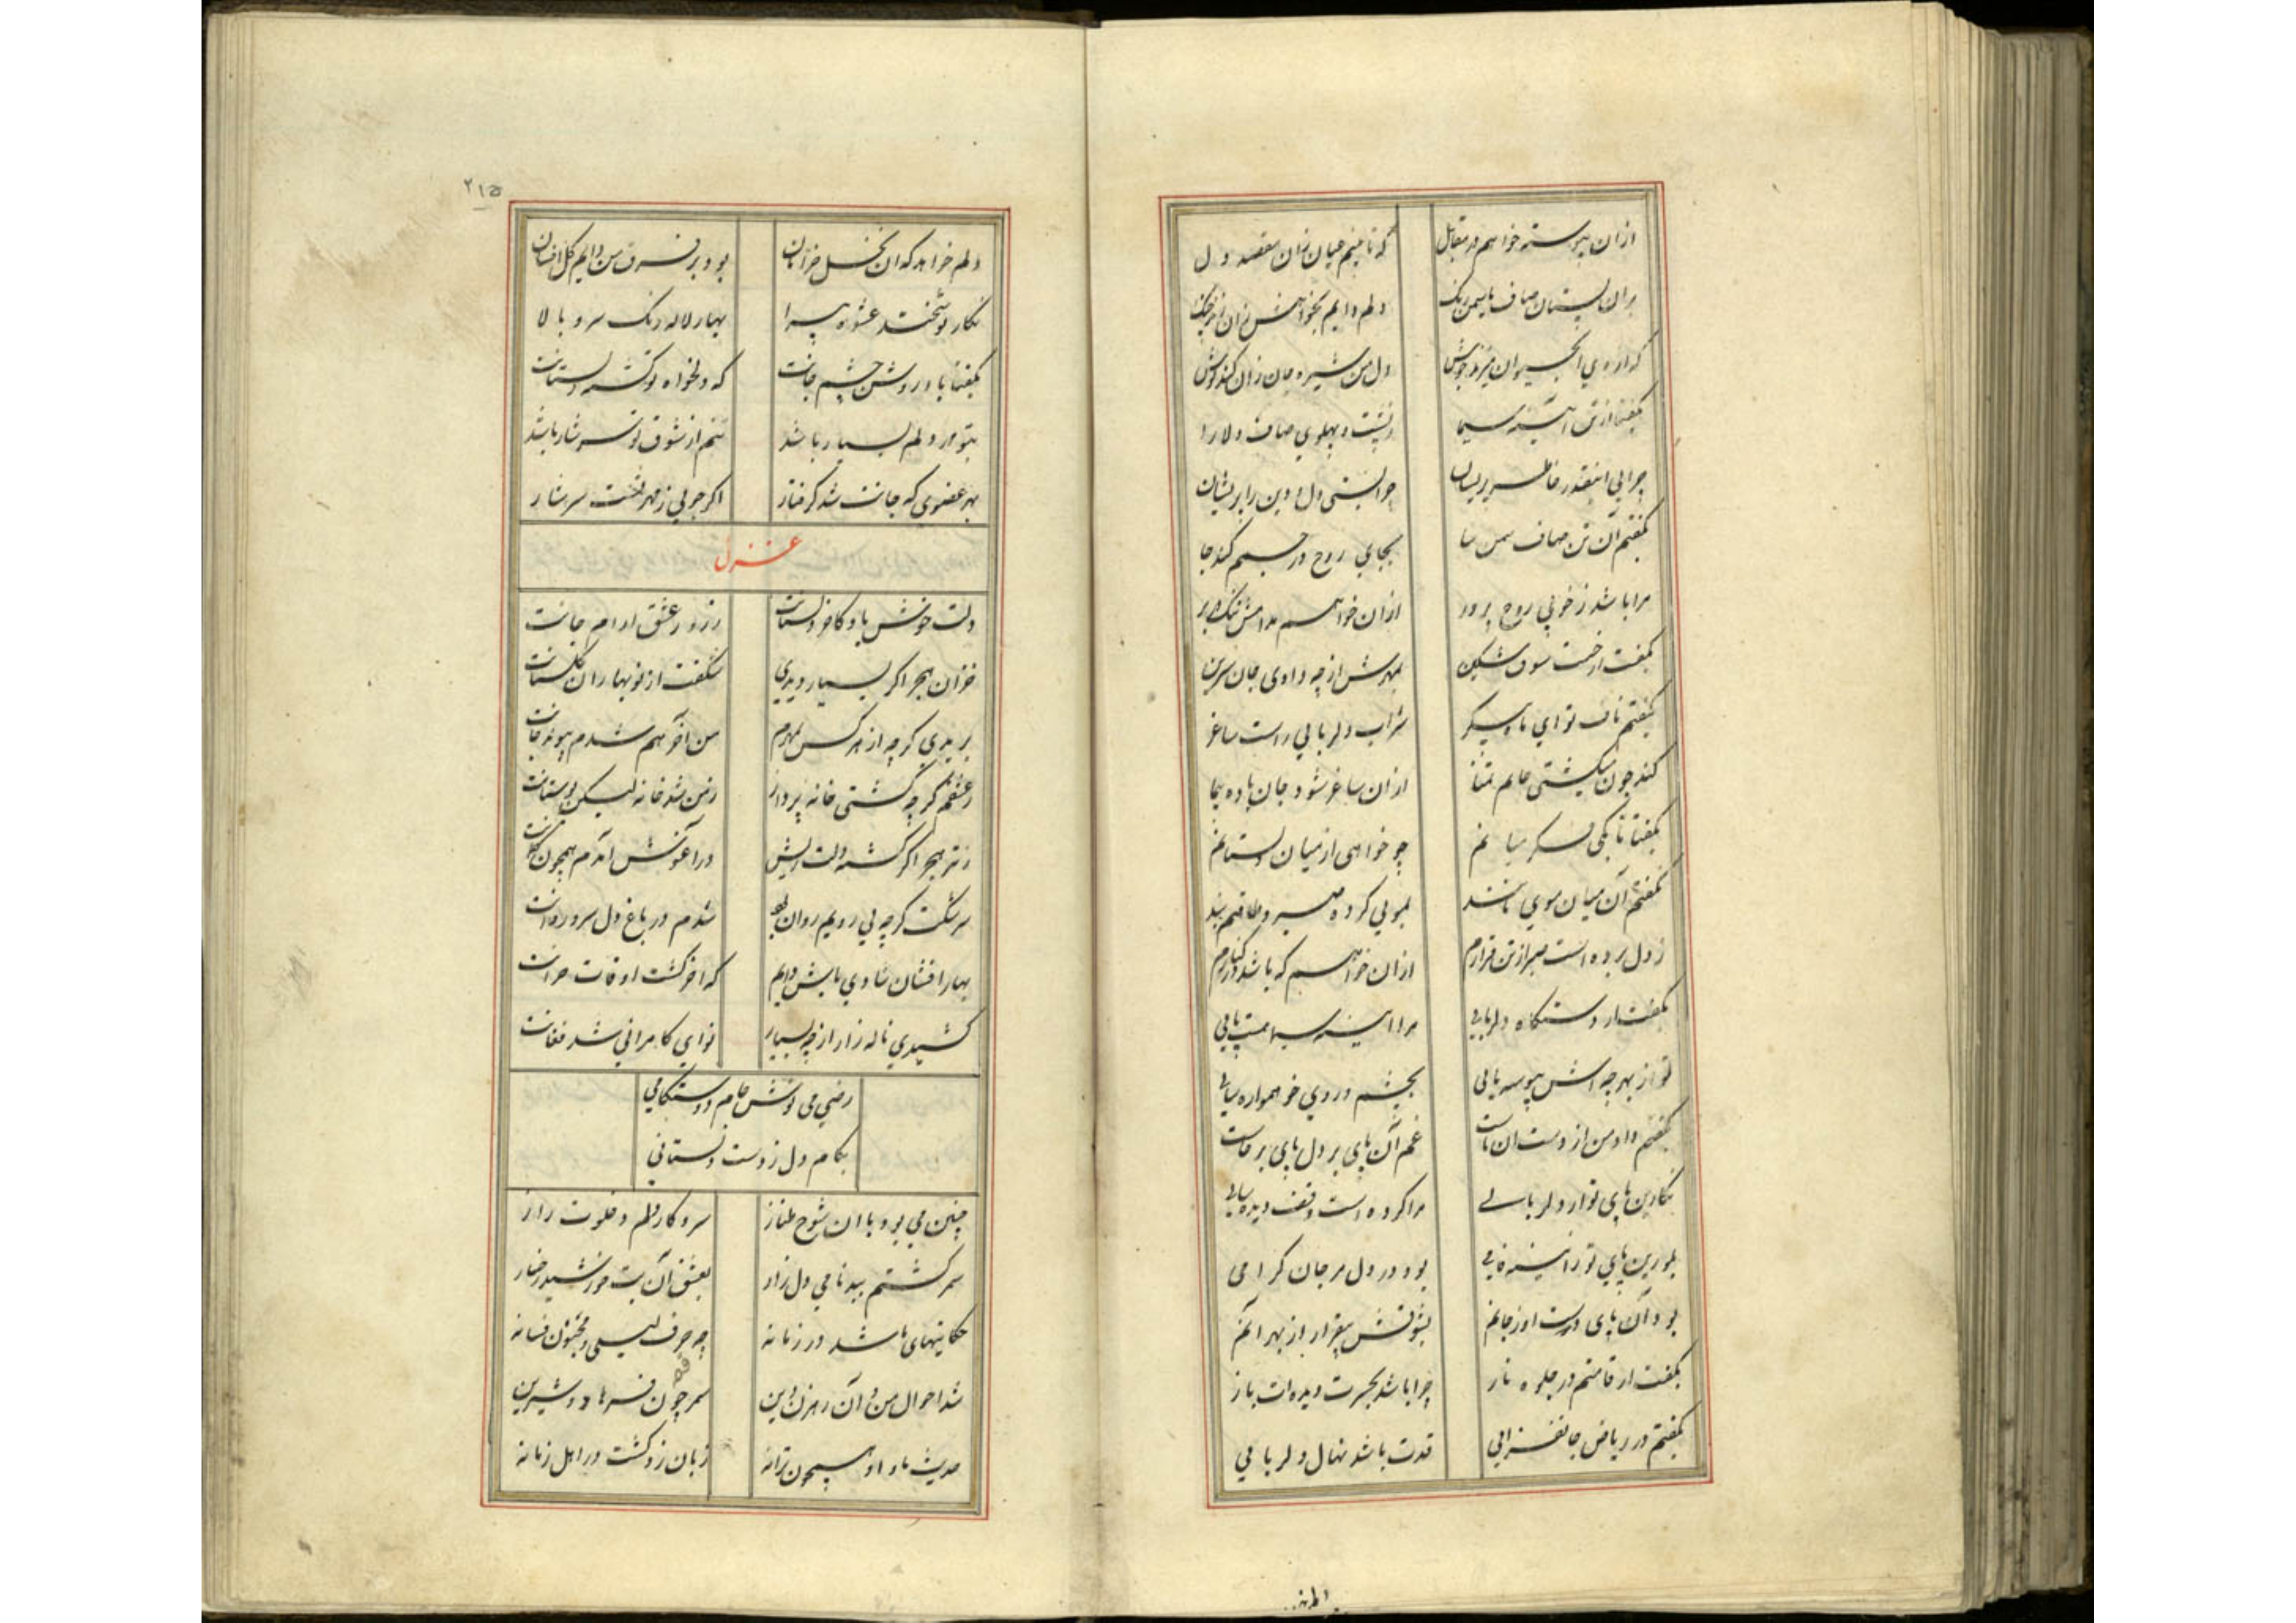 ازان پیوسته خواهم در مقابل که تا بینم عیان زان مقصد دل
بران پستان صاف یاسمن رنگ دلم دایم بخواهش زان زند چنک
دل من شیره جان زان کند نوش
بگفتا از تن آئینه سیما ز پشت و پهلوی صاف دلارا
چرایی اینقدر خاطر پریشان چو بستی دل و دین را پریشان
بگفتم آن تن صاف سمن سا بجای روح در جسمم کند جا
مرا باشد ز خوبی روح پرور ازان خواهم مدامش تنک در بر
بگفت از سوی بمهرش از چه دادی جان شیرین
بگفتم ناف تو ای ماه پیکر شراب دلربایی راست ساغر
کند چون تماشا ازان ساغر شود جان باده پیما
بگفتا تا بکی فکر میانم چو خواهی از میان دلستانم
بگفتم آن میان موی مانند بمویی کرده صبر و طاقتم بند
ز دل برده است صبر از تن قرارم ازان خواهم که باشد در کنارم
بگفت از دستگاه دلربایی مرا آئینه سیما هست پایی
تو از بهر چه اش پیوسته یابی بچشم و روی خود همواره سایی
بگفتم داد من از دست آن پاست غم آن پای بر دل پای برجاست
نگارین پای تو از دلربایی مرا کرده است وقف دیده سایی
بلورین پای تو ز آئینه فامی بود در دل مرا جان گرامی
بود آن پای دوست اوز جانم بشوقش بیقرار از بهر آنم
بگفت از قامتم در جلوه ناز چرا باشد بحسرت دیده ات باز
بگفتم در ریاض جانفزایی قدت باشد نهال دلربایی
۲۱۵
دلم خواهد که ان نخل خرامان بود بر فرق من دایم گل افشان
نگار نوشخند عشوه پیرا بهار لاله رنگ سرو بالا
بگفتا باد روشن چشم جانت که دلخواه تو گشته دلستانت
بتو در دلم بسیار باشد تنم از شوق تو سرشار باشد
بهر عضوی که جانت شد گرفتار اگر جویی ز مهر تست سرشار
غزل
دلت خوش باد کافر دلستانت ز درد عشق آرام جانت
خزان هجر اگر بسیار دیدی شکفت از نوبهاران گلستانت
بریدی گرچه از هر کس بمهرم من آخر هم شدم پیوند جانت
ز عشقم گرچه گشتی خانه پرداز ز من شد خانه لیکن بوستانت
ز تیر هجر اگر گشته دلت ریش در آغوشش آمدم همچون کمانت
سرشکت گرچه بی رویم روان بود شدم در باغ دل سرو روانت
بهار افشان شادی باش دایم که اخر گشت اوقات خزانت
کشیدی ناله زار از چه بسیار نوای کامرانی شد فغانت
رضی می نوش جام دوستکامی
بکام دل ز دست دلستانی
چنین می بود با ان شوخ طناز سر و کار دلم در خلوت راز
سمر گشتم ببدنامی دل زار بعشق آن بت خورشید رخسار
حکایتهای ما شد در زمانه چو حرف لیلی و مجنون فسانه
شد احوال من و آن رهزن دین سمر چون قصه فرهاد و شیرین
حدیث ما و او همچون ترانه زبان زد گشت در اهل زمانه